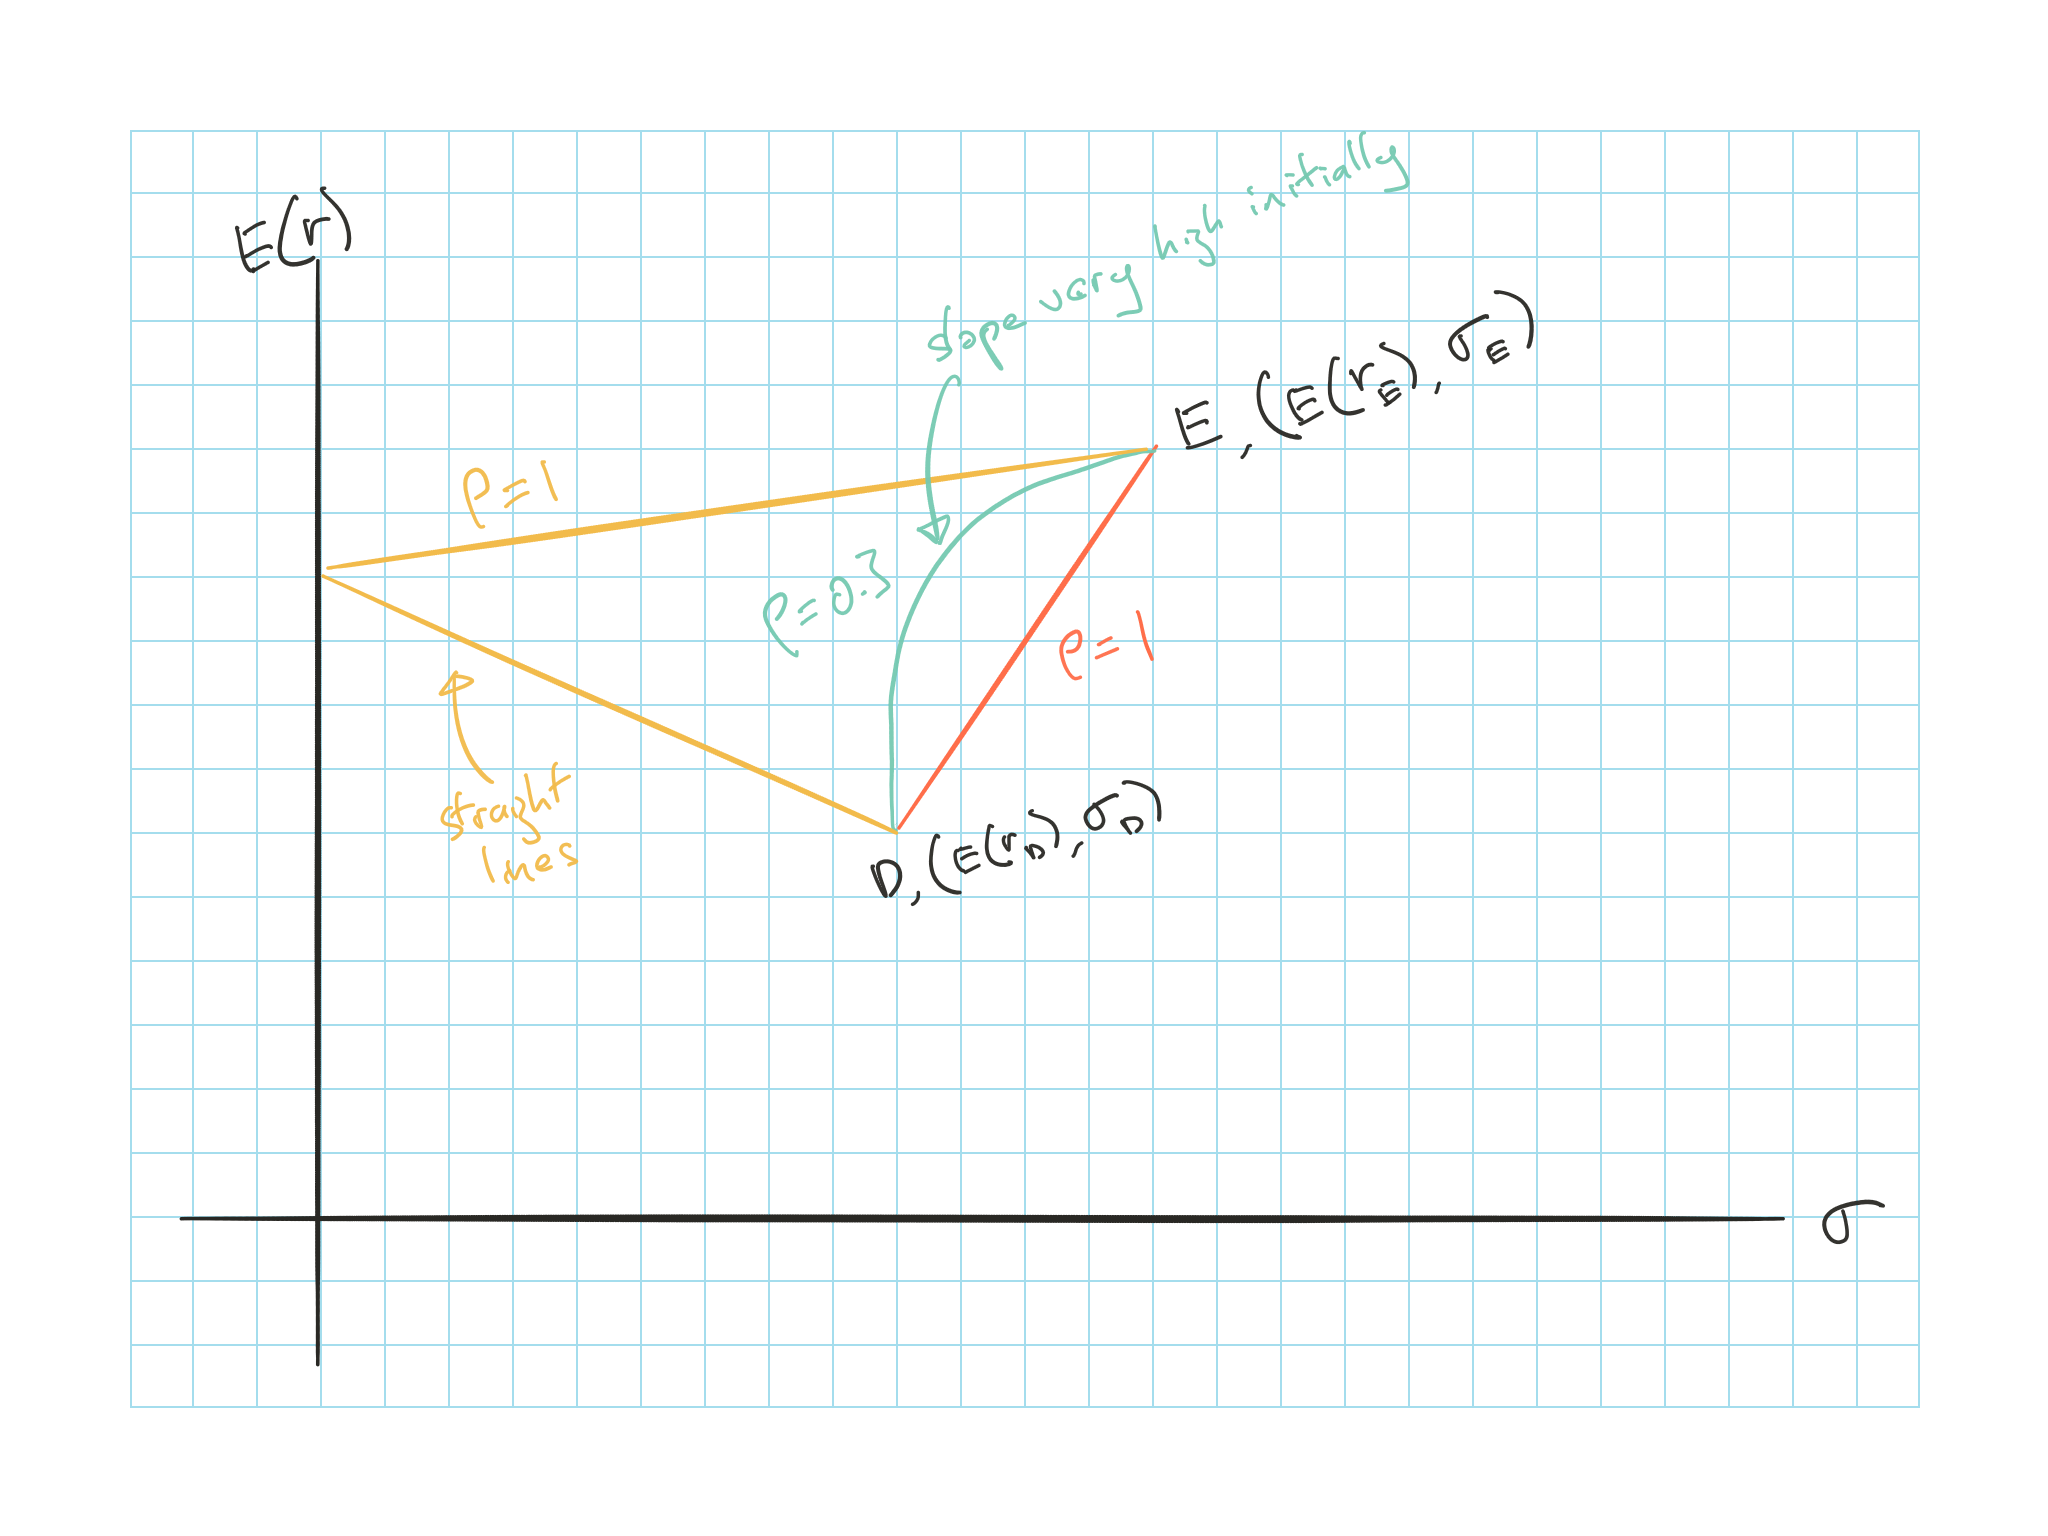 E(r)
slope very high initially
E, (E(r_E), σ_E)
ρ=1
ρ=0.3
ρ=1
straight
lines
D, (E(r_D), σ_D)
σ